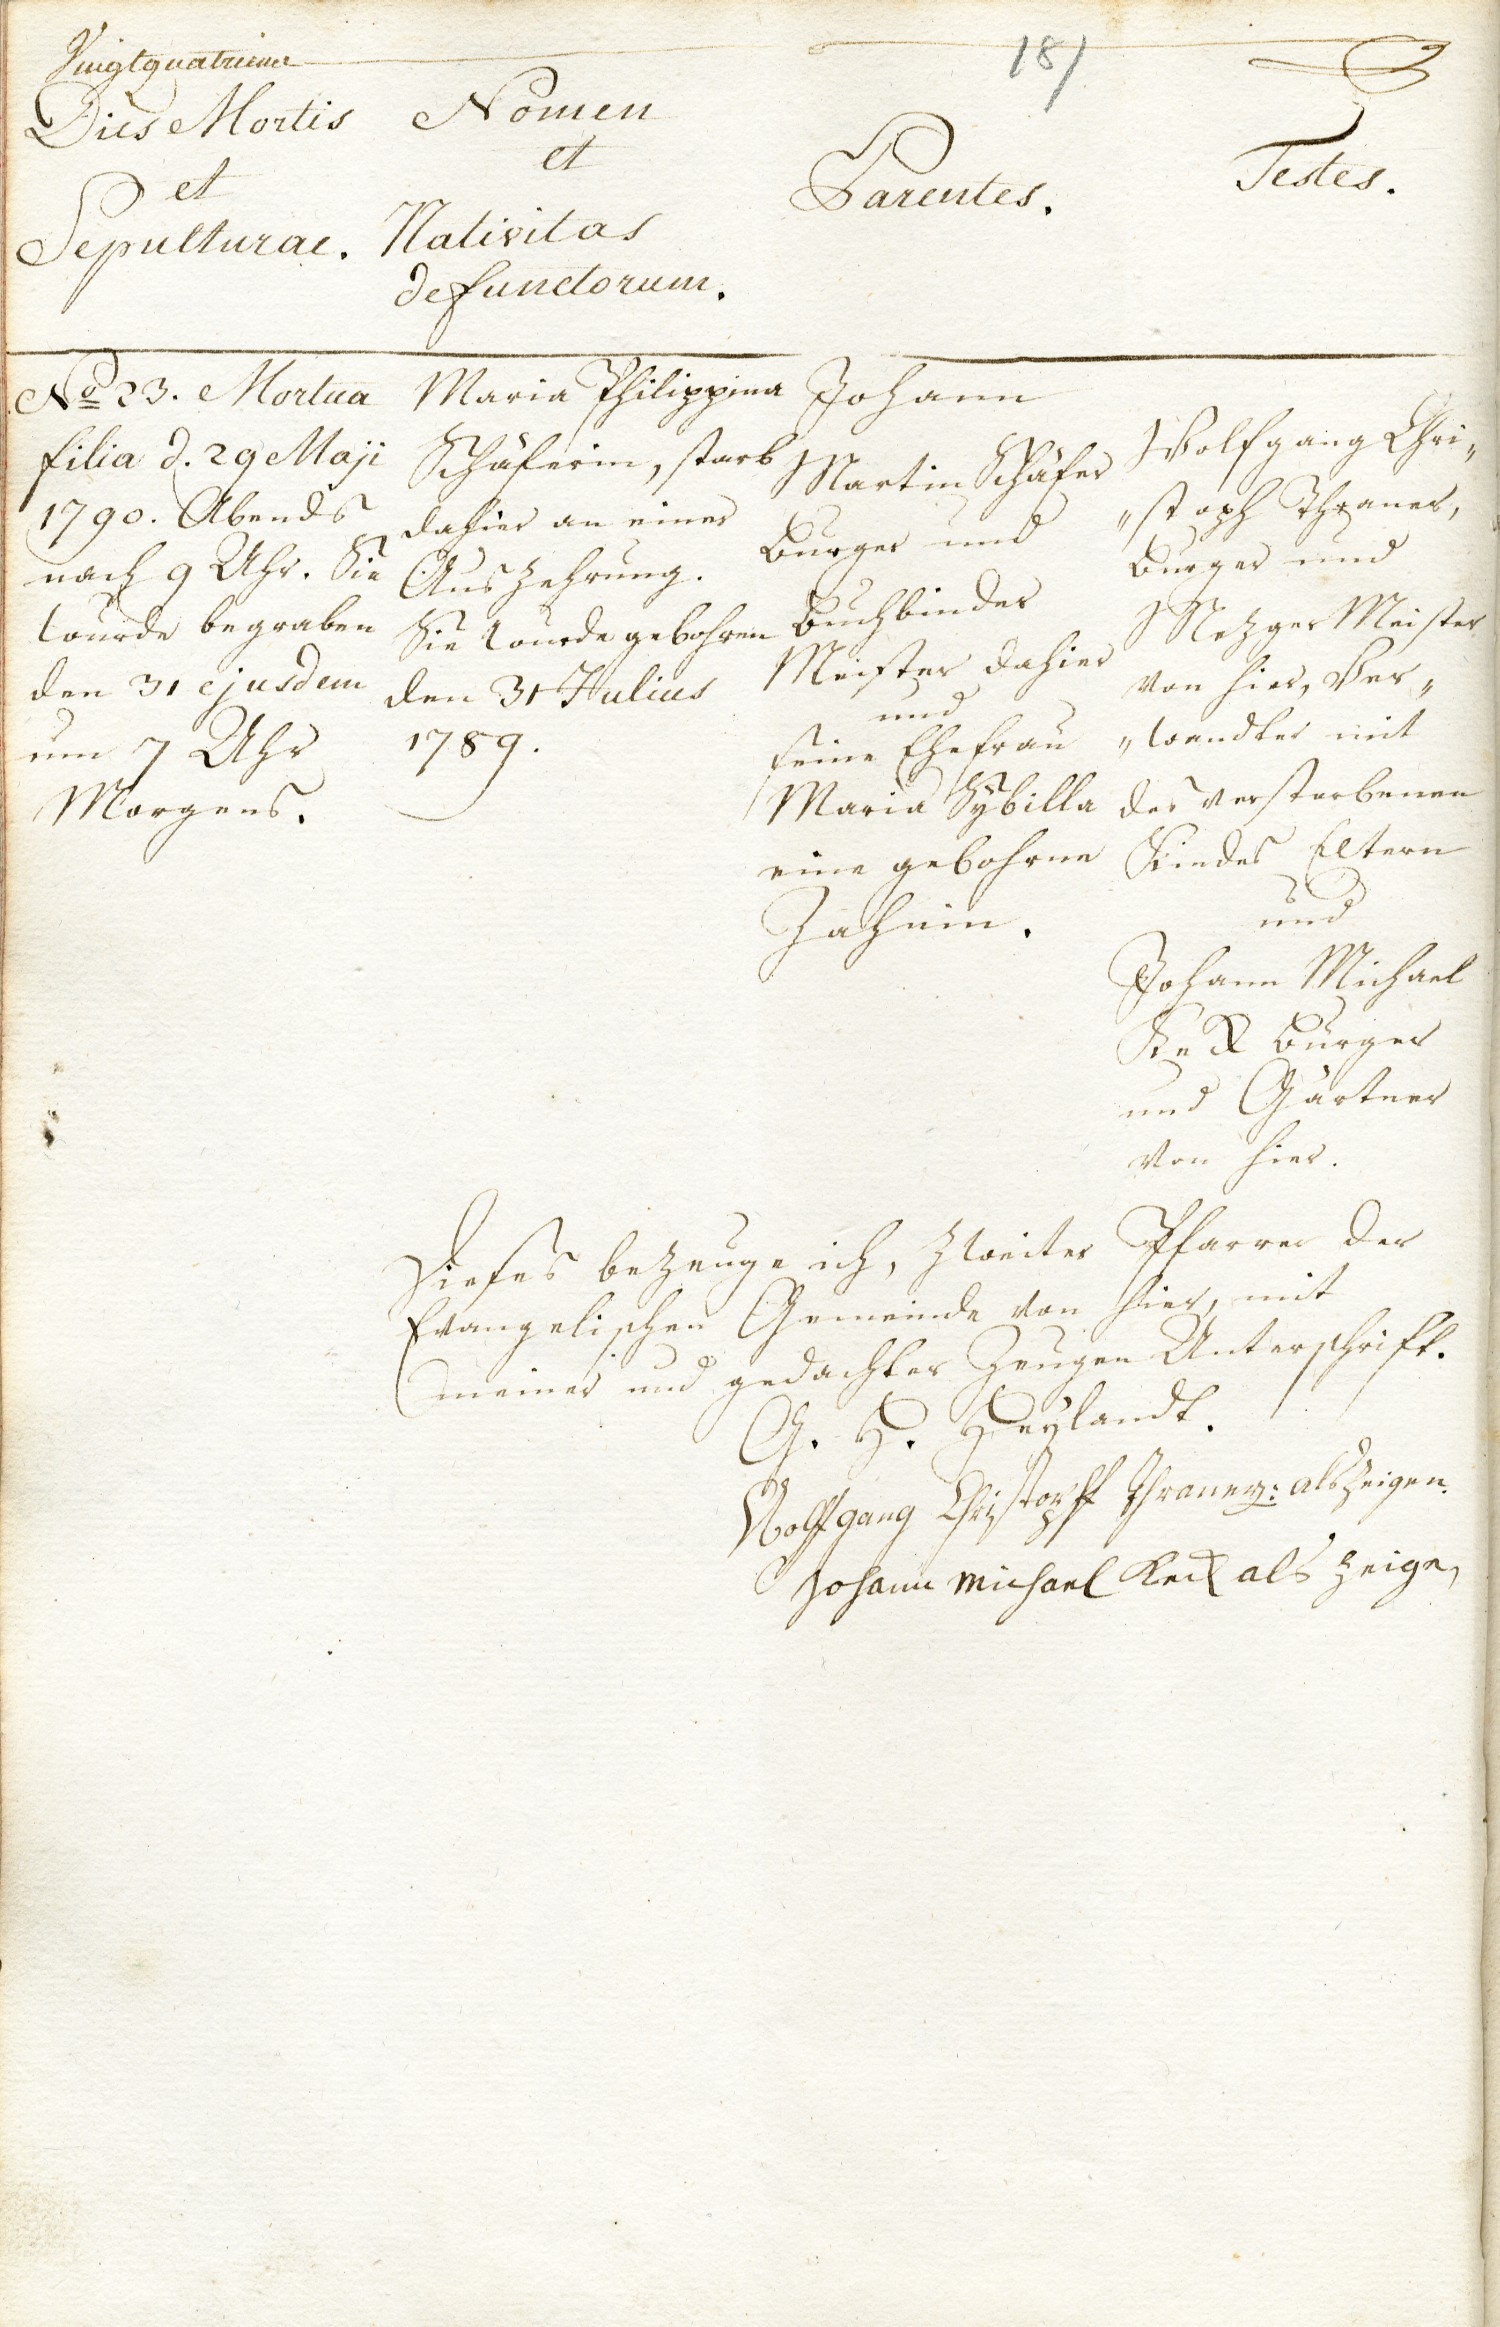 Vingtquatrieme
181
Dies Mortis
et
Sepulturae.
Nomen
et
Nativitas
defunctorum.
Parentes.
Testes.
No 23. Mortua
filia d. 29 Maji
1790. Abends
nach 9 Uhr. Sie
wurde begraben
den 31 ejusdem
um 7 Uhr
Morgens.
Maria Philippina
Schäferin, starb
dahier an einer
Auszehrung.
Sie wurde gebohren
den 31 Julius
1789.
Johann
Martin Schäfer
Burger und
Buchbinder
Meister dahier
und
seine Ehefrau
Maria Sybilla
eine gebohrne
Zahnin.
Wolfgang Chri„
„stoph Thraner,
Burger und
Metzger Meister
von hier, Ver„
„wandter mit
des verstorbenen
Kindes Eltern
und
Johann Michael
Keck Bürger
und Gärtner
von hier.
Dieses bezeuge ich, zweiter Pfarrer der
Evangelischen Gemeinde von hier, mit
meiner und gedachter Zeugen Unterschrift.
G. H. Heylandt.
Wolffgang Christopff Thraner: als Zeigen.
Johann Michael Keck als Zeige,